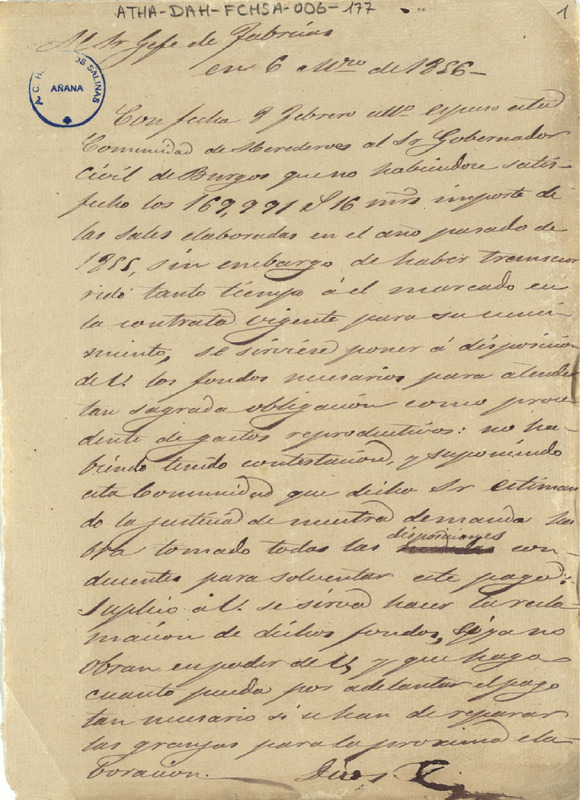 ATHA-DAH-FCMSA-006-177
1
Al Sr Gefe de Fabricas
en 6 Mzo de 1856-
AÑANA
SALINAS
Con fecha 9 Febrero ulto. espuso esta
Comunidad de Herederos al Sr Gobernador
civil de Burgos que no habiendose satis-
fecho los 169,991 16 mrs importe de
las sales elaboradas en el año pasado de
1855, sin embargo de haber transcur
rido tanto tiempo á el marcado en
la contrata vigente para su venci-
miento, se sirviese poner á disposicion
de V. los fondos necesarios para atender
tan sagrada obligacion como proce
dente de gastos reproductivos: no ha-
biendo tenido contestacion, y suponiendo
esta Comunidad que dicho Sr estiman
do la justicia de nuestra demanda ha
bra tomado todas las disposiciones con-
ducentes para solventar este pago:
Suplico á V. se sirva hacer la recla-
macion de dichos fondos, si ya no
obran en poder de V, y que haga
cuanto pueda por adelantar el pago
tan necesario si se han de reparar
las granjas para la proxima ela-
boracion. Dios